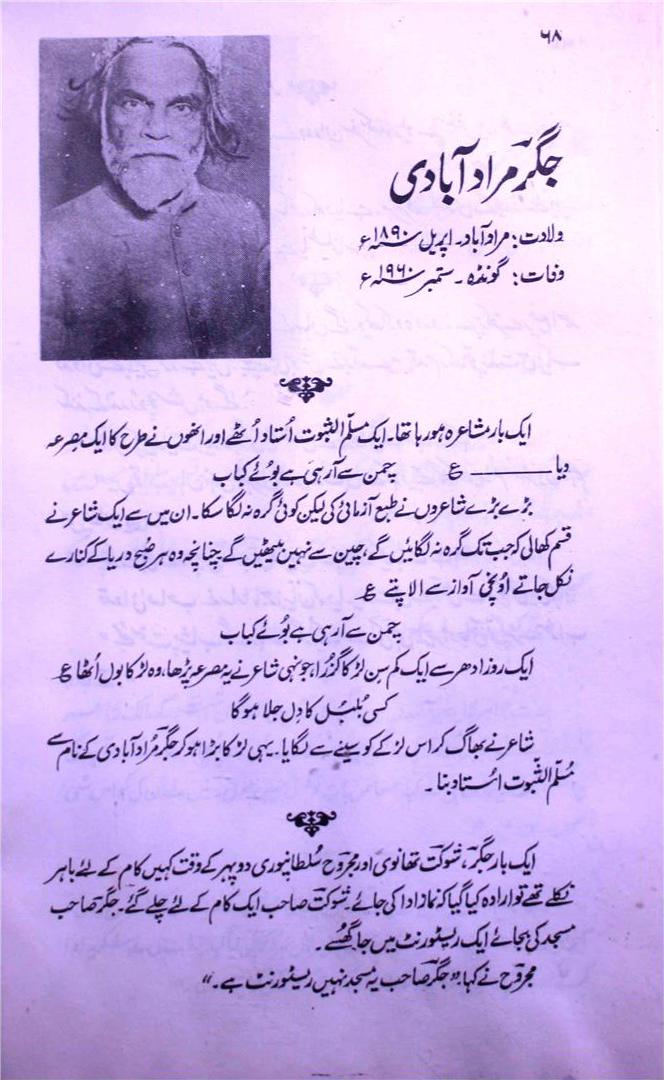 ۶۸
جگر مراد آبادی
ولادت: مراد آباد۔ اپریل ۱۸۹۰ء
وفات: گونڈہ ۔ ستمبر ۱۹۶۰ء
ایک بار مشاعرہ ہو رہا تھا۔ ایک مسلّم الثبوت اُستاد اُٹھے اور انھوں نے طرح کا ایک مصرعہ
دیا ــــــــ ع چمن سے آرہی ہے بوئے کباب
بڑے بڑے شاعروں نے طبع آزمائی کی لیکن کوئی گرہ نہ لگا سکا۔ ان میں سے ایک شاعر نے
قسم کھالی کہ جب تک گرہ نہ لگائیں گے، چین سے نہیں بیٹھیں گے چنانچہ وہ ہر صبح دریا کے کنارے
نکل جاتے اُونچی آواز سے الاپتے ع
چمن سے آرہی ہے بوئے کباب
ایک روز ادھر سے ایک کم سن لڑکا گزرا، جونہی شاعر نے یہ مصرعہ پڑھا، وہ لڑکا بول اُٹھا ع
کسی بُلبُل کا دِل جلا ہوگا
شاعر نے بھاگ کر اس لڑکے کو سینے سے لگایا۔ یہی لڑکا بڑا ہو کر جگر مُراد آبادی کے نام سے
مُسلّم الثبوت اُستاد بنا۔
ایک بار جگر، شوکت تھانوی اور مجروح سُلطانپوری دوپہر کے وقت کہیں کام کے لئے باہر
نکلے تھے تو ارادہ کیا گیا کہ نماز ادا کی جائے۔ شوکت صاحب ایک کام کے لئے چلے گئے۔ جگر صاحب
مسجد کی بجائے ایک ریسٹورنٹ میں جا گھُسے۔
مجروح نے کہا: "جگر صاحب یہ مسجد نہیں ریسٹورنٹ ہے۔"